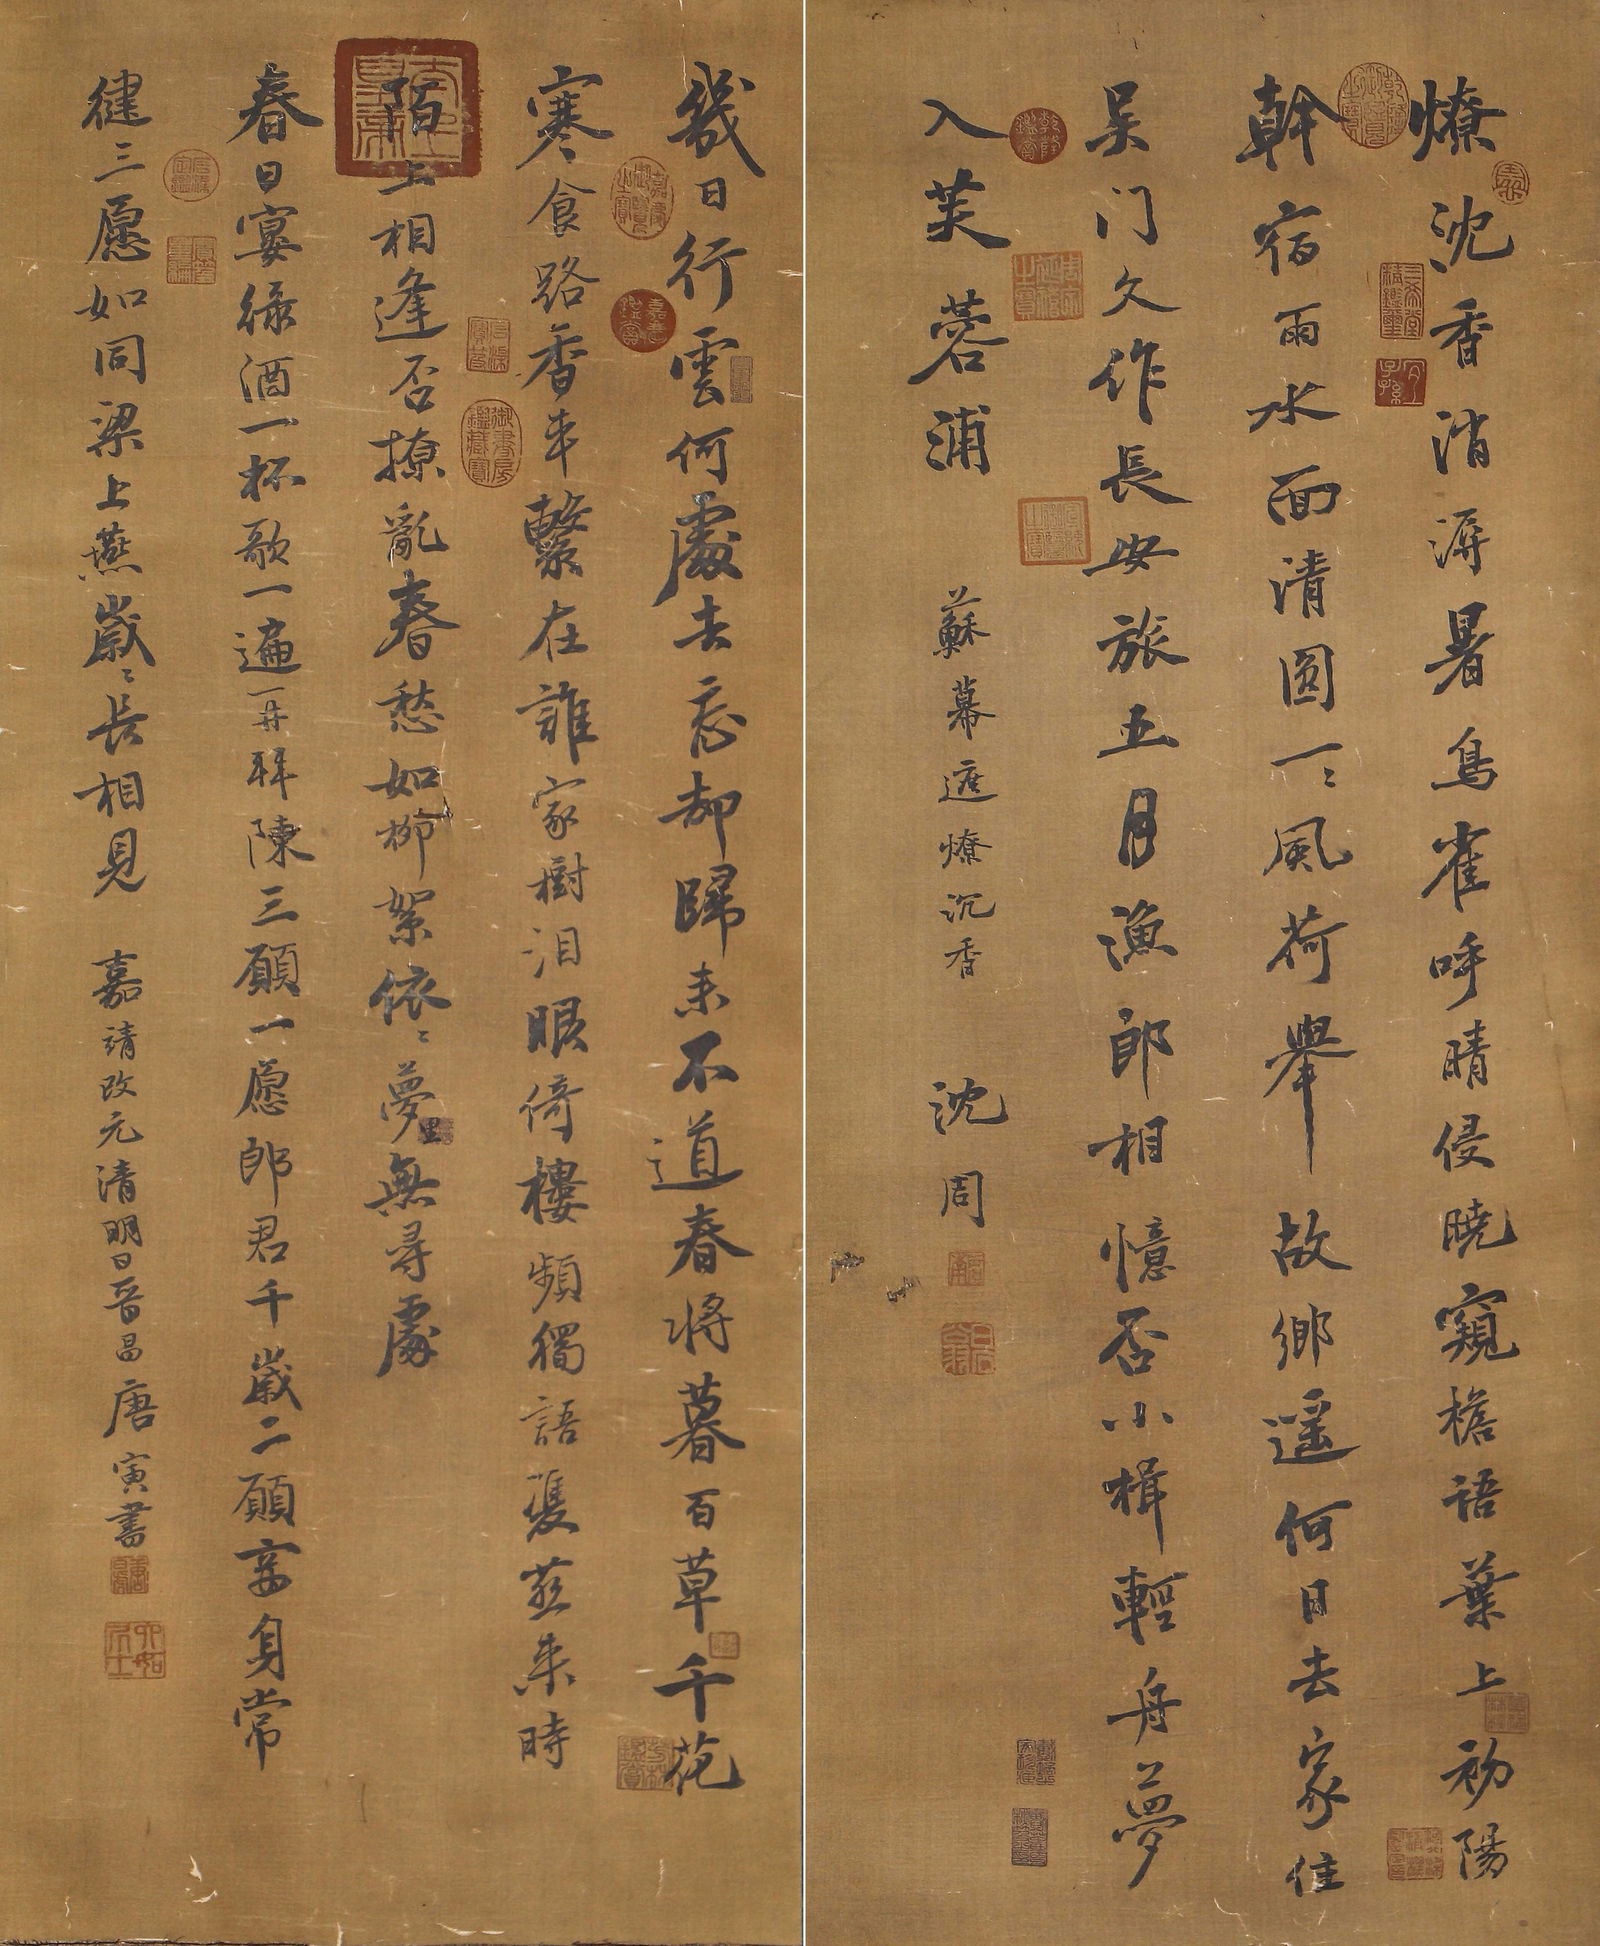 燎沈香消溽暑鳥雀呼晴侵曉窺檐語葉上初陽
幹宿雨水面清圆一〻風荷舉故鄉遥何日去家住
吴门久作長安旅五月漁郎相憶否小楫輕舟夢
入芙蓉浦
蘇幕遮燎沉香
沈周
幾日行雲何處去忘却歸来不道春将暮百草千花
寒食路香车繫在誰家樹泪眼倚樓頻獨語雙燕来時
陌上相逢否撩亂春愁如柳絮依〻夢里無尋處
春日宴绿酒一杯歌一遍再拜陳三願一愿郎君千歲二願妾身常
健三愿如同梁上燕歲〻長相見
嘉靖改元清明日晉昌唐寅書